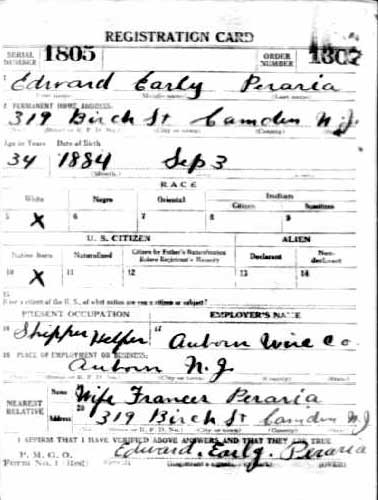 REGISTRATION CARD
SERIAL NUMBER 1805 ORDER NUMBER 1307
1 Edward Early Peraria
(Last name)
2 PERMANENT HOME ADDRESS:
319 Birch St Camden N.J.
(City or town) (County) (State)
Age in Years Date of Birth
34 1884 Sep 3
(Month.)
RACE
White Negro Oriental Indian
Citizen Noncitizen
5 X 6 7 8 9
U. S. CITIZEN ALIEN
Native Born Naturalized Citizen by Father's Naturalization Before Registrant's Majority Declarant Non-declarant
10 X 11 12 13 14
15
If not a citizen of the U. S., of what nation are you a citizen or subject?
PRESENT OCCUPATION EMPLOYER'S NAME
16 Shipper Helper 17 Auborn Wire Co.
18 PLACE OF EMPLOYMENT OR BUSINESS:
Auborn N.J.
(City or town) (County) (State)
NEAREST RELATIVE Name Wife Frances Peraria
Address 20 319 Birch St Camden N.J.
I AFFIRM THAT I HAVE VERIFIED ABOVE ANSWERS AND THAT THEY ARE TRUE
P. M. G. O.
Form No. 1 (Red) Edward Early Peraria
(OVER)